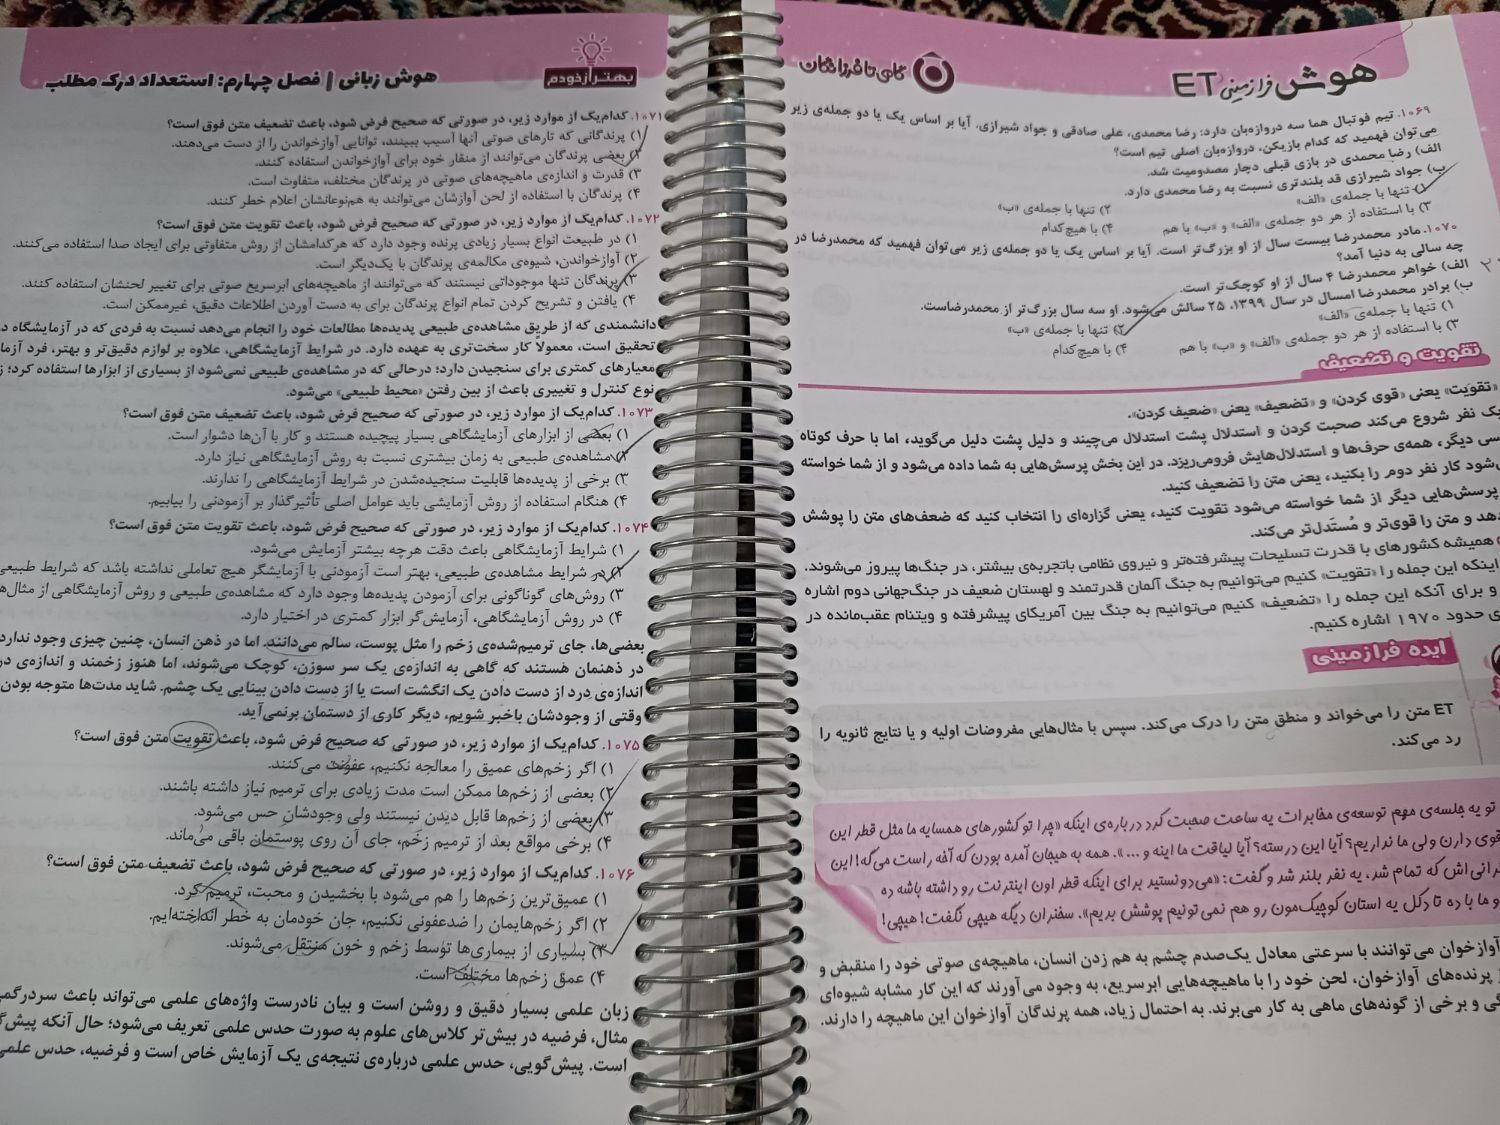 هوش فرازمینی ET
گامی تا فرزانگان
۱۰۶۹. تیم فوتبال هما سه دروازه‌بان دارد: رضا محمدی، علی صادقی و جواد شیرازی. آیا بر اساس یک یا دو جمله‌ی زیر
می‌توان فهمید که کدام بازیکن، دروازه‌بان اصلی تیم است؟
الف) رضا محمدی در بازی قبلی دچار مصدومیت شد.
ب) جواد شیرازی قد بلندتری نسبت به رضا محمدی دارد.
۱) تنها با جمله‌ی «الف»
۲) تنها با جمله‌ی «ب»
۳) با استفاده از هر دو جمله‌ی «الف» و «ب» با هم
۴) با هیچ‌کدام
۱۰۷۰. مادر محمدرضا بیست سال از او بزرگ‌تر است. آیا بر اساس یک یا دو جمله‌ی زیر می‌توان فهمید که محمدرضا در
چه سالی به دنیا آمد؟
الف) خواهر محمدرضا ۴ سال از او کوچک‌تر است.
ب) برادر محمدرضا امسال در سال ۱۳۹۹، ۲۵ سالش می‌شود. او سه سال بزرگ‌تر از محمدرضاست.
۱) تنها با جمله‌ی «الف»
۲) تنها با جمله‌ی «ب»
۳) با استفاده از هر دو جمله‌ی «الف» و «ب» با هم
۴) با هیچ‌کدام
تقویت و تضعیف
«تقویت» یعنی «قوی کردن» و «تضعیف» یعنی «ضعیف کردن».
یک نفر شروع می‌کند صحبت کردن و استدلال پشت استدلال می‌چیند و دلیل پشت دلیل می‌گوید، اما با حرف کوتاه
دیگر، همه‌ی حرف‌ها و استدلال‌هایش فرومی‌ریزد. در این بخش پرسش‌هایی به شما داده می‌شود و از شما خواسته
می‌شود کار نفر دوم را بکنید، یعنی متن را تضعیف کنید.
پرسش‌هایی دیگر از شما خواسته می‌شود تقویت کنید، یعنی گزاره‌ای را انتخاب کنید که ضعف‌های متن را پوشش
دهد و متن را قوی‌تر و مُستَدل‌تر می‌کند.
همیشه کشورهای با قدرت تسلیحات پیشرفته‌تر و نیروی نظامی باتجربه‌ی بیشتر، در جنگ‌ها پیروز می‌شوند.
اینکه این جمله را «تقویت» کنیم می‌توانیم به جنگ آلمان قدرتمند و لهستان ضعیف در جنگ‌جهانی دوم اشاره
و برای آنکه این جمله را «تضعیف» کنیم می‌توانیم به جنگ بین آمریکای پیشرفته و ویتنام عقب‌مانده در
حدود ۱۹۷۰ اشاره کنیم.
ایده فرازمینی
ET متن را می‌خواند و منطق متن را درک می‌کند. سپس با مثال‌هایی مفروضات اولیه و یا نتایج ثانویه را
رد می‌کند.
تو یه جلسه‌ی مهم توسعه‌ی مخابرات یه ساعت صحبت کرد درباره‌ی اینکه «چرا تو کشورهای همسایه ما مثل قطر این
قوی دارن ولی ما نداریم؟ آیا این درسته؟ آیا لیاقت ما اینه و ...». همه به هیجان آمده بودن که آخه راست می‌گه! این
که تمام شد، یه نفر بلند شد و گفت: «می‌دونستید برای اینکه قطر اون اینترنت رو داشته باشه ده
و ما با ده تا دکل یه استان کوچیک‌مون رو هم نمی‌تونیم پوشش بدیم». سخنران دیگه هیچی نگفت! هیچی!
آوازخوان می‌توانند با سرعتی معادل یک‌صدم چشم به هم زدن انسان، ماهیچه‌ی صوتی خود را منقبض و
پرنده‌های آوازخوان، لحن خود را با ماهیچه‌هایی ابرسریع، به وجود می‌آورند که این کار مشابه شیوه‌ای
و برخی از گونه‌های ماهی به کار می‌برند. به احتمال زیاد، همه پرندگان آوازخوان این ماهیچه را دارند.
بهتر از خودم
هوش زبانی | فصل چهارم: استعداد درک مطلب
۱۰۷۱. کدام‌یک از موارد زیر، در صورتی که صحیح فرض شود، باعث تضعیف متن فوق است؟
۱) پرندگانی که تارهای صوتی آنها آسیب ببینند، توانایی آوازخواندن را از دست می‌دهند.
۲) بعضی پرندگان می‌توانند از منقار خود برای آوازخواندن استفاده کنند.
۳) قدرت و اندازه‌ی ماهیچه‌های صوتی در پرندگان مختلف، متفاوت است.
۴) پرندگان با استفاده از لحن آوازشان می‌توانند به هم‌نوعانشان اعلام خطر کنند.
۱۰۷۲. کدام‌یک از موارد زیر، در صورتی که صحیح فرض شود، باعث تقویت متن فوق است؟
۱) در طبیعت انواع بسیار زیادی پرنده وجود دارد که هرکدامشان از روش متفاوتی برای ایجاد صدا استفاده می‌کنند.
۲) آوازخواندن، شیوه‌ی مکالمه‌ی پرندگان با یک‌دیگر است.
۳) پرندگان تنها موجوداتی نیستند که می‌توانند از ماهیچه‌های ابرسریع صوتی برای تغییر لحنشان استفاده کنند.
۴) یافتن و تشریح کردن تمام انواع پرندگان برای به دست آوردن اطلاعات دقیق، غیرممکن است.
دانشمندی که از طریق مشاهده‌ی طبیعی پدیده‌ها مطالعات خود را انجام می‌دهد نسبت به فردی که در آزمایشگاه در
تحقیق است، معمولاً کار سخت‌تری به عهده دارد. در شرایط آزمایشگاهی، علاوه بر لوازم دقیق‌تر و بهتر، فرد
معیارهای کمتری برای سنجیدن دارد؛ درحالی که در مشاهده‌ی طبیعی نمی‌شود از بسیاری از ابزارها استفاده کرد؛
نوع کنترل و تغییری باعث از بین رفتن «محیط طبیعی» می‌شود.
۱۰۷۳. کدام‌یک از موارد زیر، در صورتی که صحیح فرض شود، باعث تضعیف متن فوق است؟
۱) بعضی از ابزارهای آزمایشگاهی بسیار پیچیده هستند و کار با آن‌ها دشوار است.
۲) مشاهده‌ی طبیعی به زمان بیشتری نسبت به روش آزمایشگاهی نیاز دارد.
۳) برخی از پدیده‌ها قابلیت سنجیده‌شدن در شرایط آزمایشگاهی را ندارند.
۴) هنگام استفاده از روش آزمایشی باید عوامل اصلی تأثیرگذار بر آزمودنی را بیابیم.
۱۰۷۴. کدام‌یک از موارد زیر، در صورتی که صحیح فرض شود، باعث تقویت متن فوق است؟
۱) شرایط آزمایشگاهی باعث دقت هرچه بیشتر آزمایش می‌شود.
۲) در شرایط مشاهده‌ی طبیعی، بهتر است آزمودنی با آزمایشگر هیچ تعاملی نداشته باشد که شرایط طبیعی
۳) روش‌های گوناگونی برای آزمودن پدیده‌ها وجود دارد که مشاهده‌ی طبیعی و روش آزمایشگاهی از
۴) در روش آزمایشگاهی، آزمایش‌گر ابزار کمتری در اختیار دارد.
بعضی‌ها، جای ترمیم‌شده‌ی زخم را مثل پوست، سالم می‌دانند. اما در ذهن انسان، چنین چیزی وجود ندارد
در ذهنمان هستند که گاهی به اندازه‌ی یک سر سوزن، کوچک می‌شوند، اما هنوز زخمند و اندازه‌ی
اندازه‌ی درد از دست دادن یک انگشت است یا از دست دادن بینایی یک چشم. شاید مدت‌ها متوجه بودن
وقتی از وجودشان باخبر شویم، دیگر کاری از دستمان برنمی‌آید.
۱۰۷۵. کدام‌یک از موارد زیر، در صورتی که صحیح فرض شود، باعث تقویت متن فوق است؟
۱) اگر زخم‌های عمیق را معالجه نکنیم، عفونت می‌کنند.
۲) بعضی از زخم‌ها ممکن است مدت زیادی برای ترمیم نیاز داشته باشند.
۳) بعضی از زخم‌ها قابل دیدن نیستند ولی وجودشان حس می‌شود.
۴) برخی مواقع بعد از ترمیم زخم، جای آن روی پوستمان باقی می‌ماند.
۱۰۷۶. کدام‌یک از موارد زیر، در صورتی که صحیح فرض شود، باعث تضعیف متن فوق است؟
۱) عمیق‌ترین زخم‌ها را هم می‌شود با بخشیدن و محبت، ترمیم کرد.
۲) اگر زخم‌هایمان را ضدعفونی نکنیم، جان خودمان به خطر انداخته‌ایم.
۳) بسیاری از بیماری‌ها توسط زخم و خون منتقل می‌شوند.
۴) عمق زخم‌ها مختلف است.
زبان علمی بسیار دقیق و روشن است و بیان نادرست واژه‌های علمی می‌تواند باعث
مثال، فرضیه در بیش‌تر کلاس‌های علوم به صورت حدس علمی تعریف می‌شود؛ حال آنکه
است. پیش‌گویی، حدس علمی درباره‌ی نتیجه‌ی یک آزمایش خاص است و فرضیه، حدس علمی